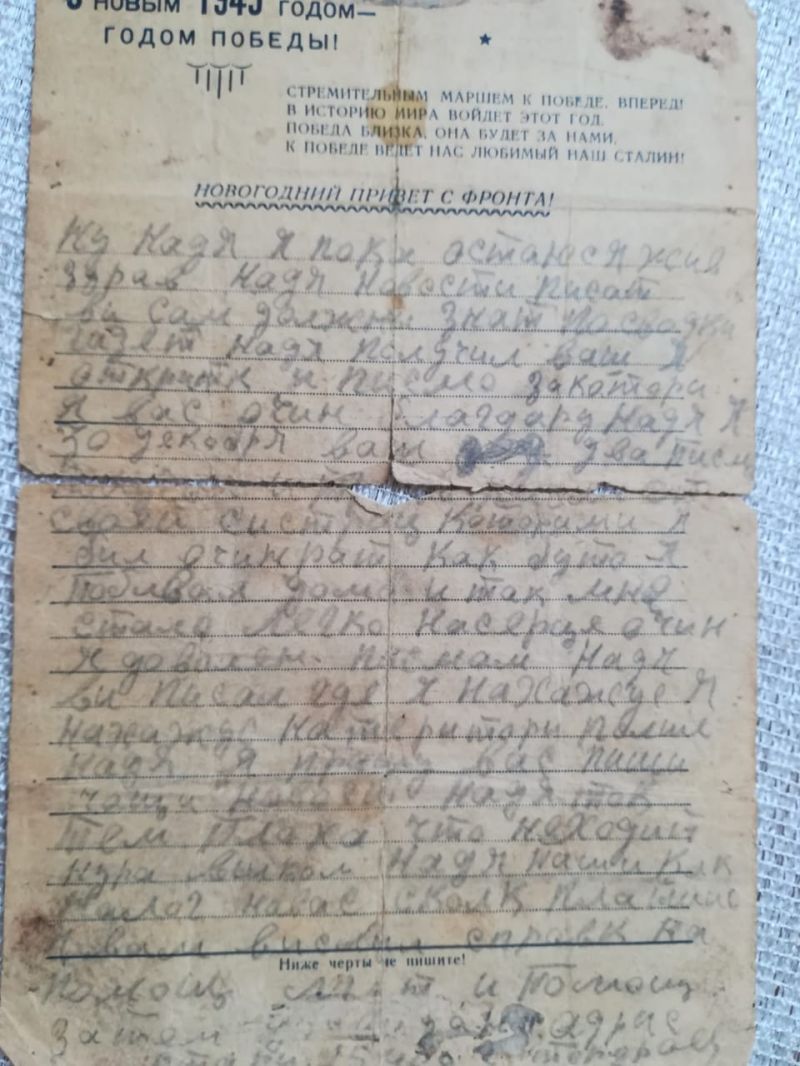 С НОВЫМ 1945 ГОДОМ—
ГОДОМ ПОБЕДЫ!
СТРЕМИТЕЛЬНЫМ МАРШЕМ К ПОБЕДЕ, ВПЕРЕД!
В ИСТОРИЮ МИРА ВОЙДЕТ ЭТОТ ГОД.
ПОБЕДА БЛИЗКА, ОНА БУДЕТ ЗА НАМИ,
К ПОБЕДЕ ВЕДЕТ НАС ЛЮБИМЫЙ НАШ СТАЛИН!
НОВОГОДНИЙ ПРИВЕТ С ФРОНТА!
Ну Надя я пока остаюся жив
здрав Надя новости писат
ви сам должни знат по сводки
газет Надя получил ваш
открытк и писмо за котори
Я вас очин благдару Надя Я
30 декабря ваш два писм
своей систриц которими я
бил очинрат как буто я
побивал дома и так мне
стало легко насерця очин
я доволен писмам Надя
ви писал где я нахажус Я
нахажус натериторти полше
Надя я прашу вас пиши
чащи Надя
тем плаха что неходит
Надя наши как
налог навас сколк платит
вам висилил справк на
Ниже черты не пишите!
помощ и помощ
затем адрис